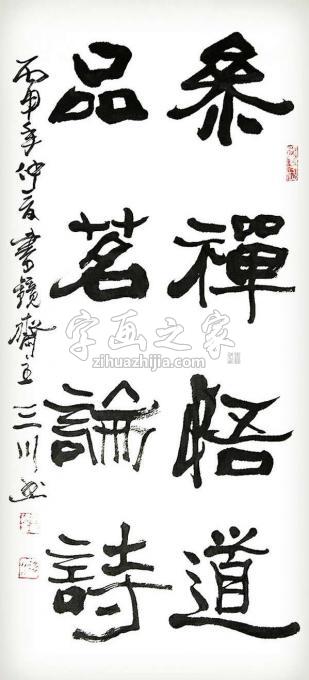 參禪悟道
品茗論詩
丙申年仲夏書鏡齋主三川書
字画之家
zihuazhijia.com